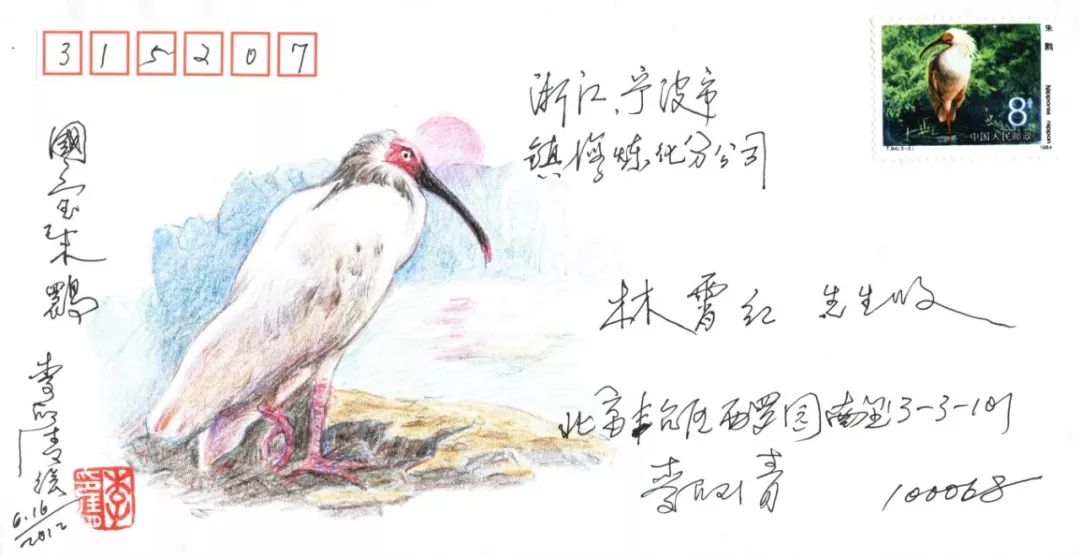 315207
浙江宁波市
镇海炼化分公司
林霄红 先生收
北京丰台区西罗园南里3-3-101
李 青
100068
國宝朱鹮
李 青绘
6.16
2012
朱鹮 Nipponia nippon
8分
中国人民邮政
T.94(3-2)
1984